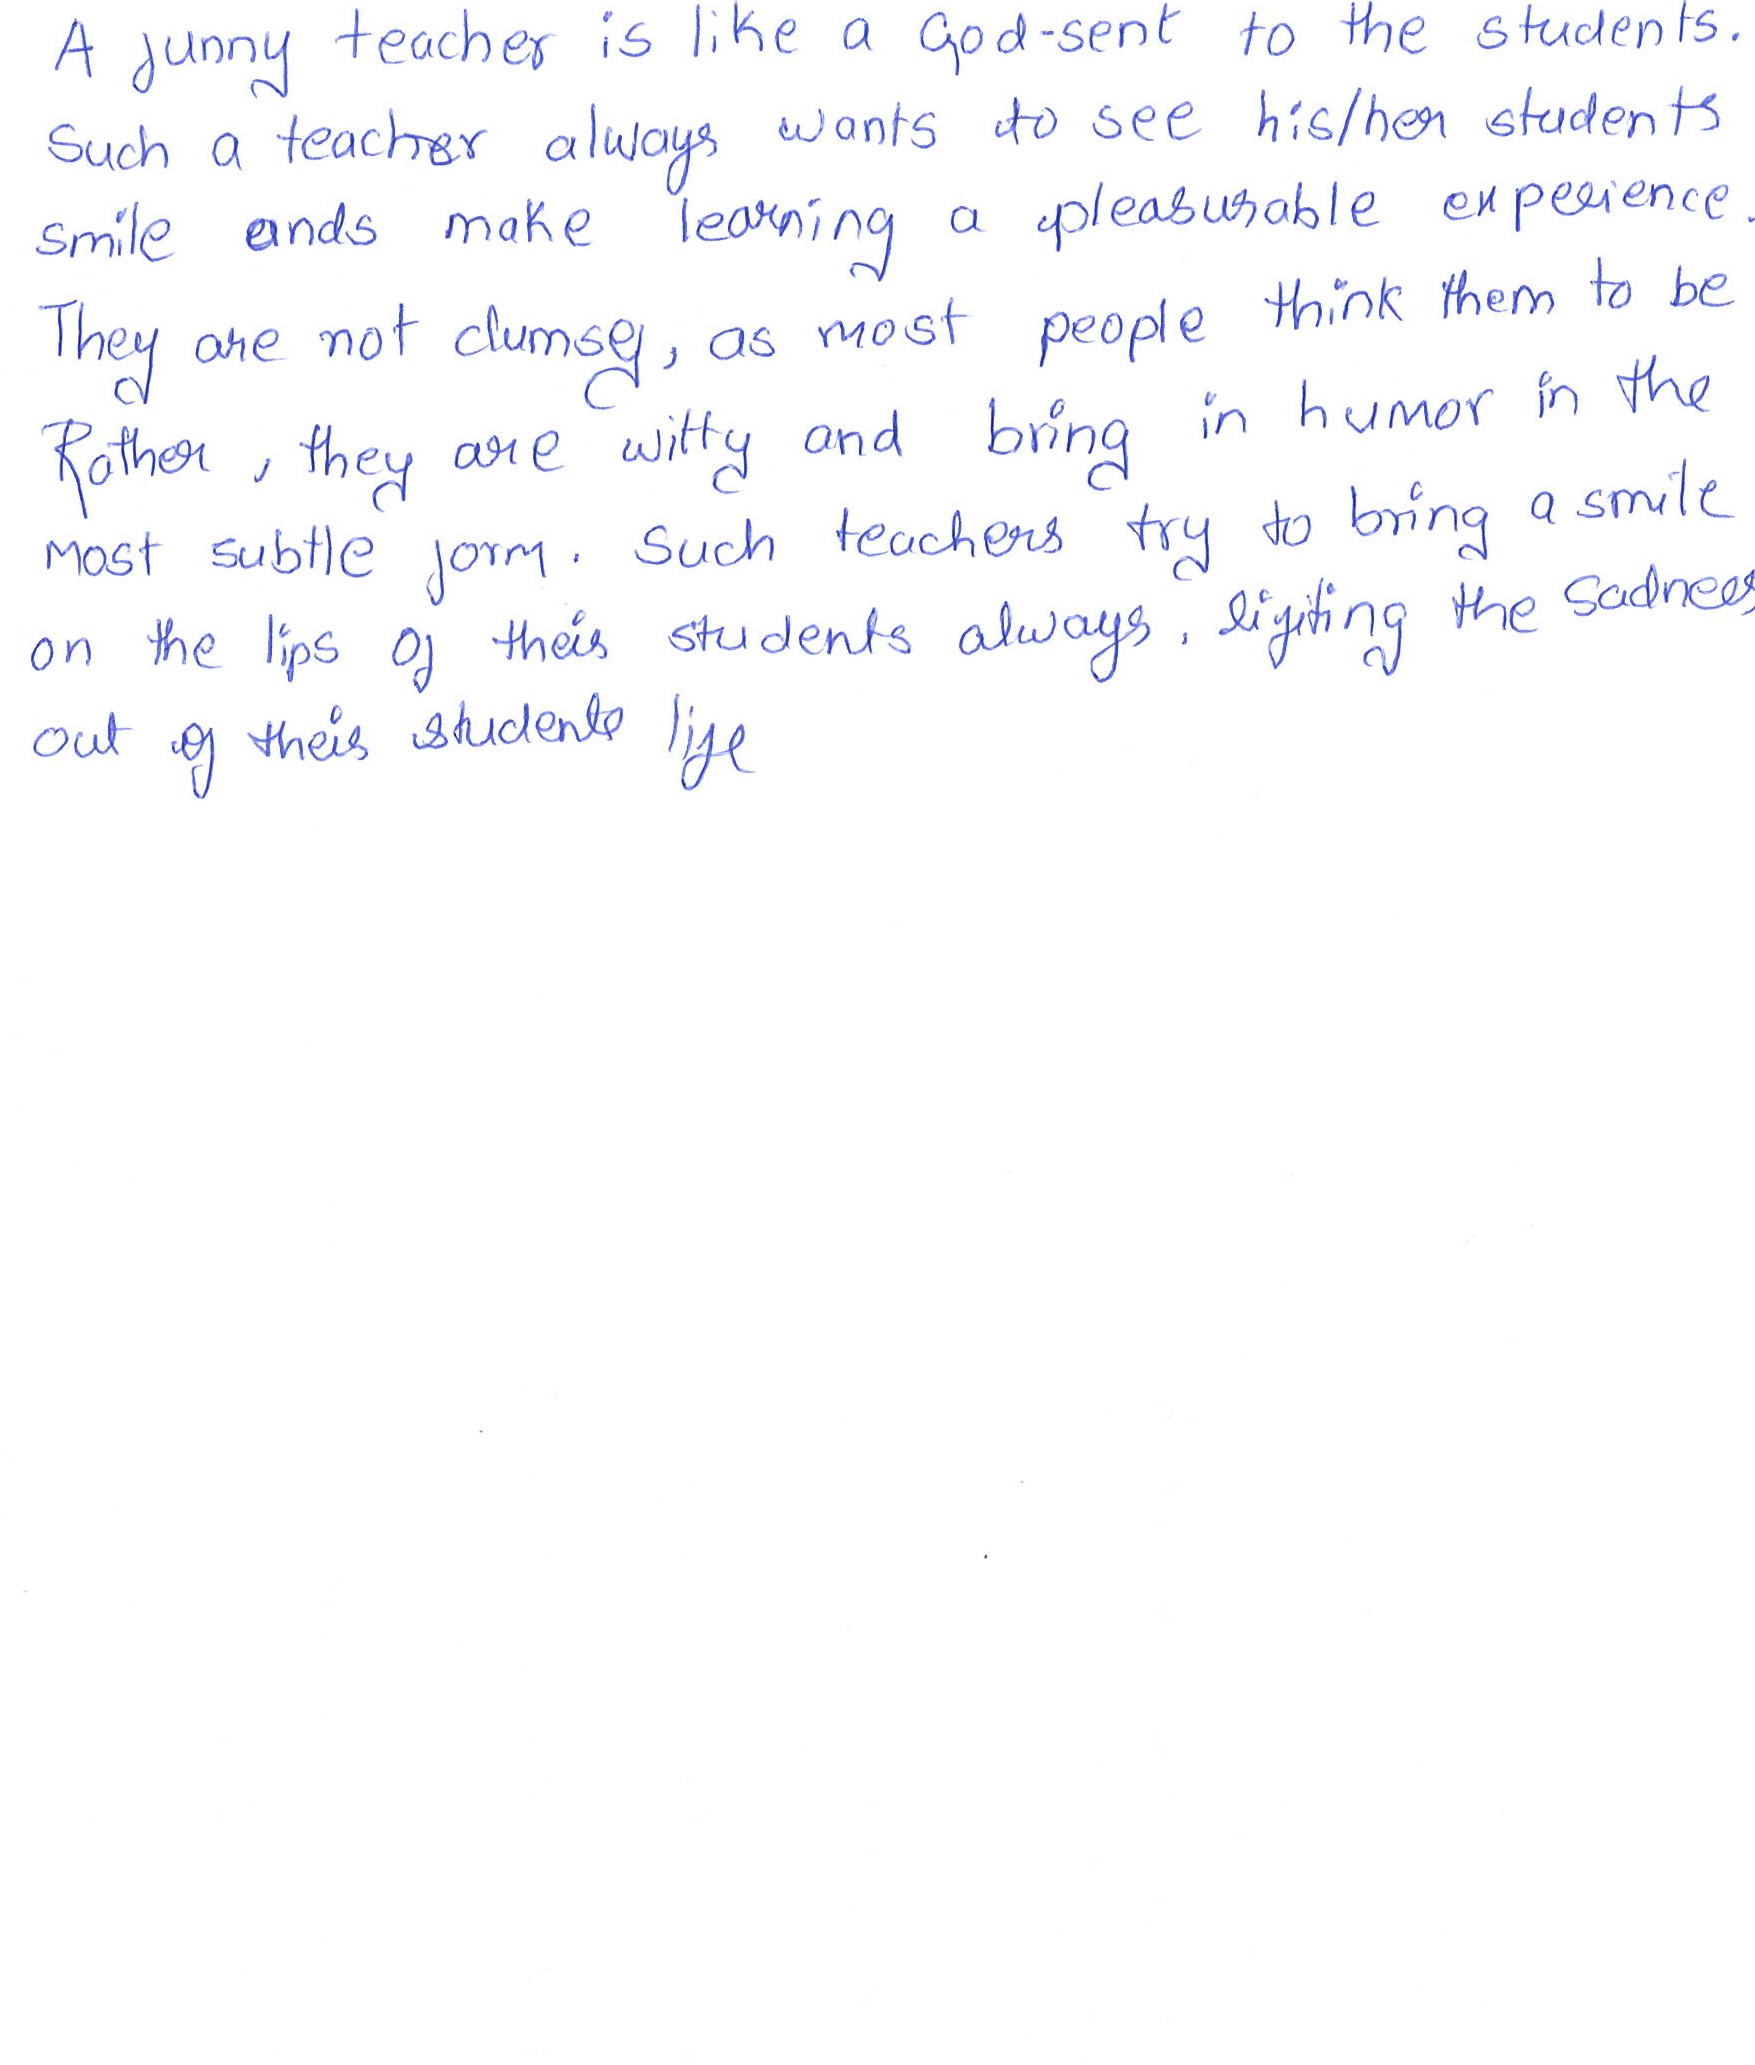 A funny teacher is like a God-sent to the students.
Such a teacher always wants to see his/her students
smile ands make learning a pleasurable experience.
They are not clumsy, as most people think them to be
Rather, they are witty and bring in humor in the
most subtle form. Such teachers try to bring a smile
on the lips of their students always, lifiting the sadness
out of their students life